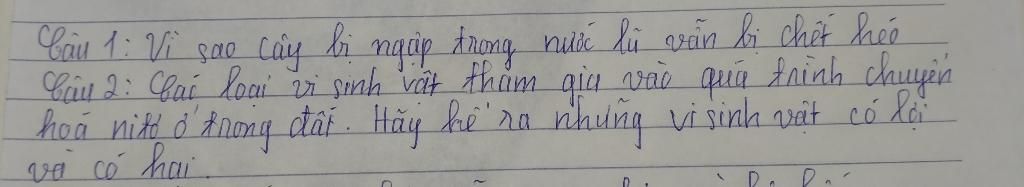 Câu 1: Vì sao cây bị ngập trong nước lũ vẫn bị chết héo
Câu 2: Các loại vi sinh vật tham gia vào quá trình chuyển
hoá nitơ ở trong đất. Hãy kể ra những vi sinh vật có lợi
và có hại.